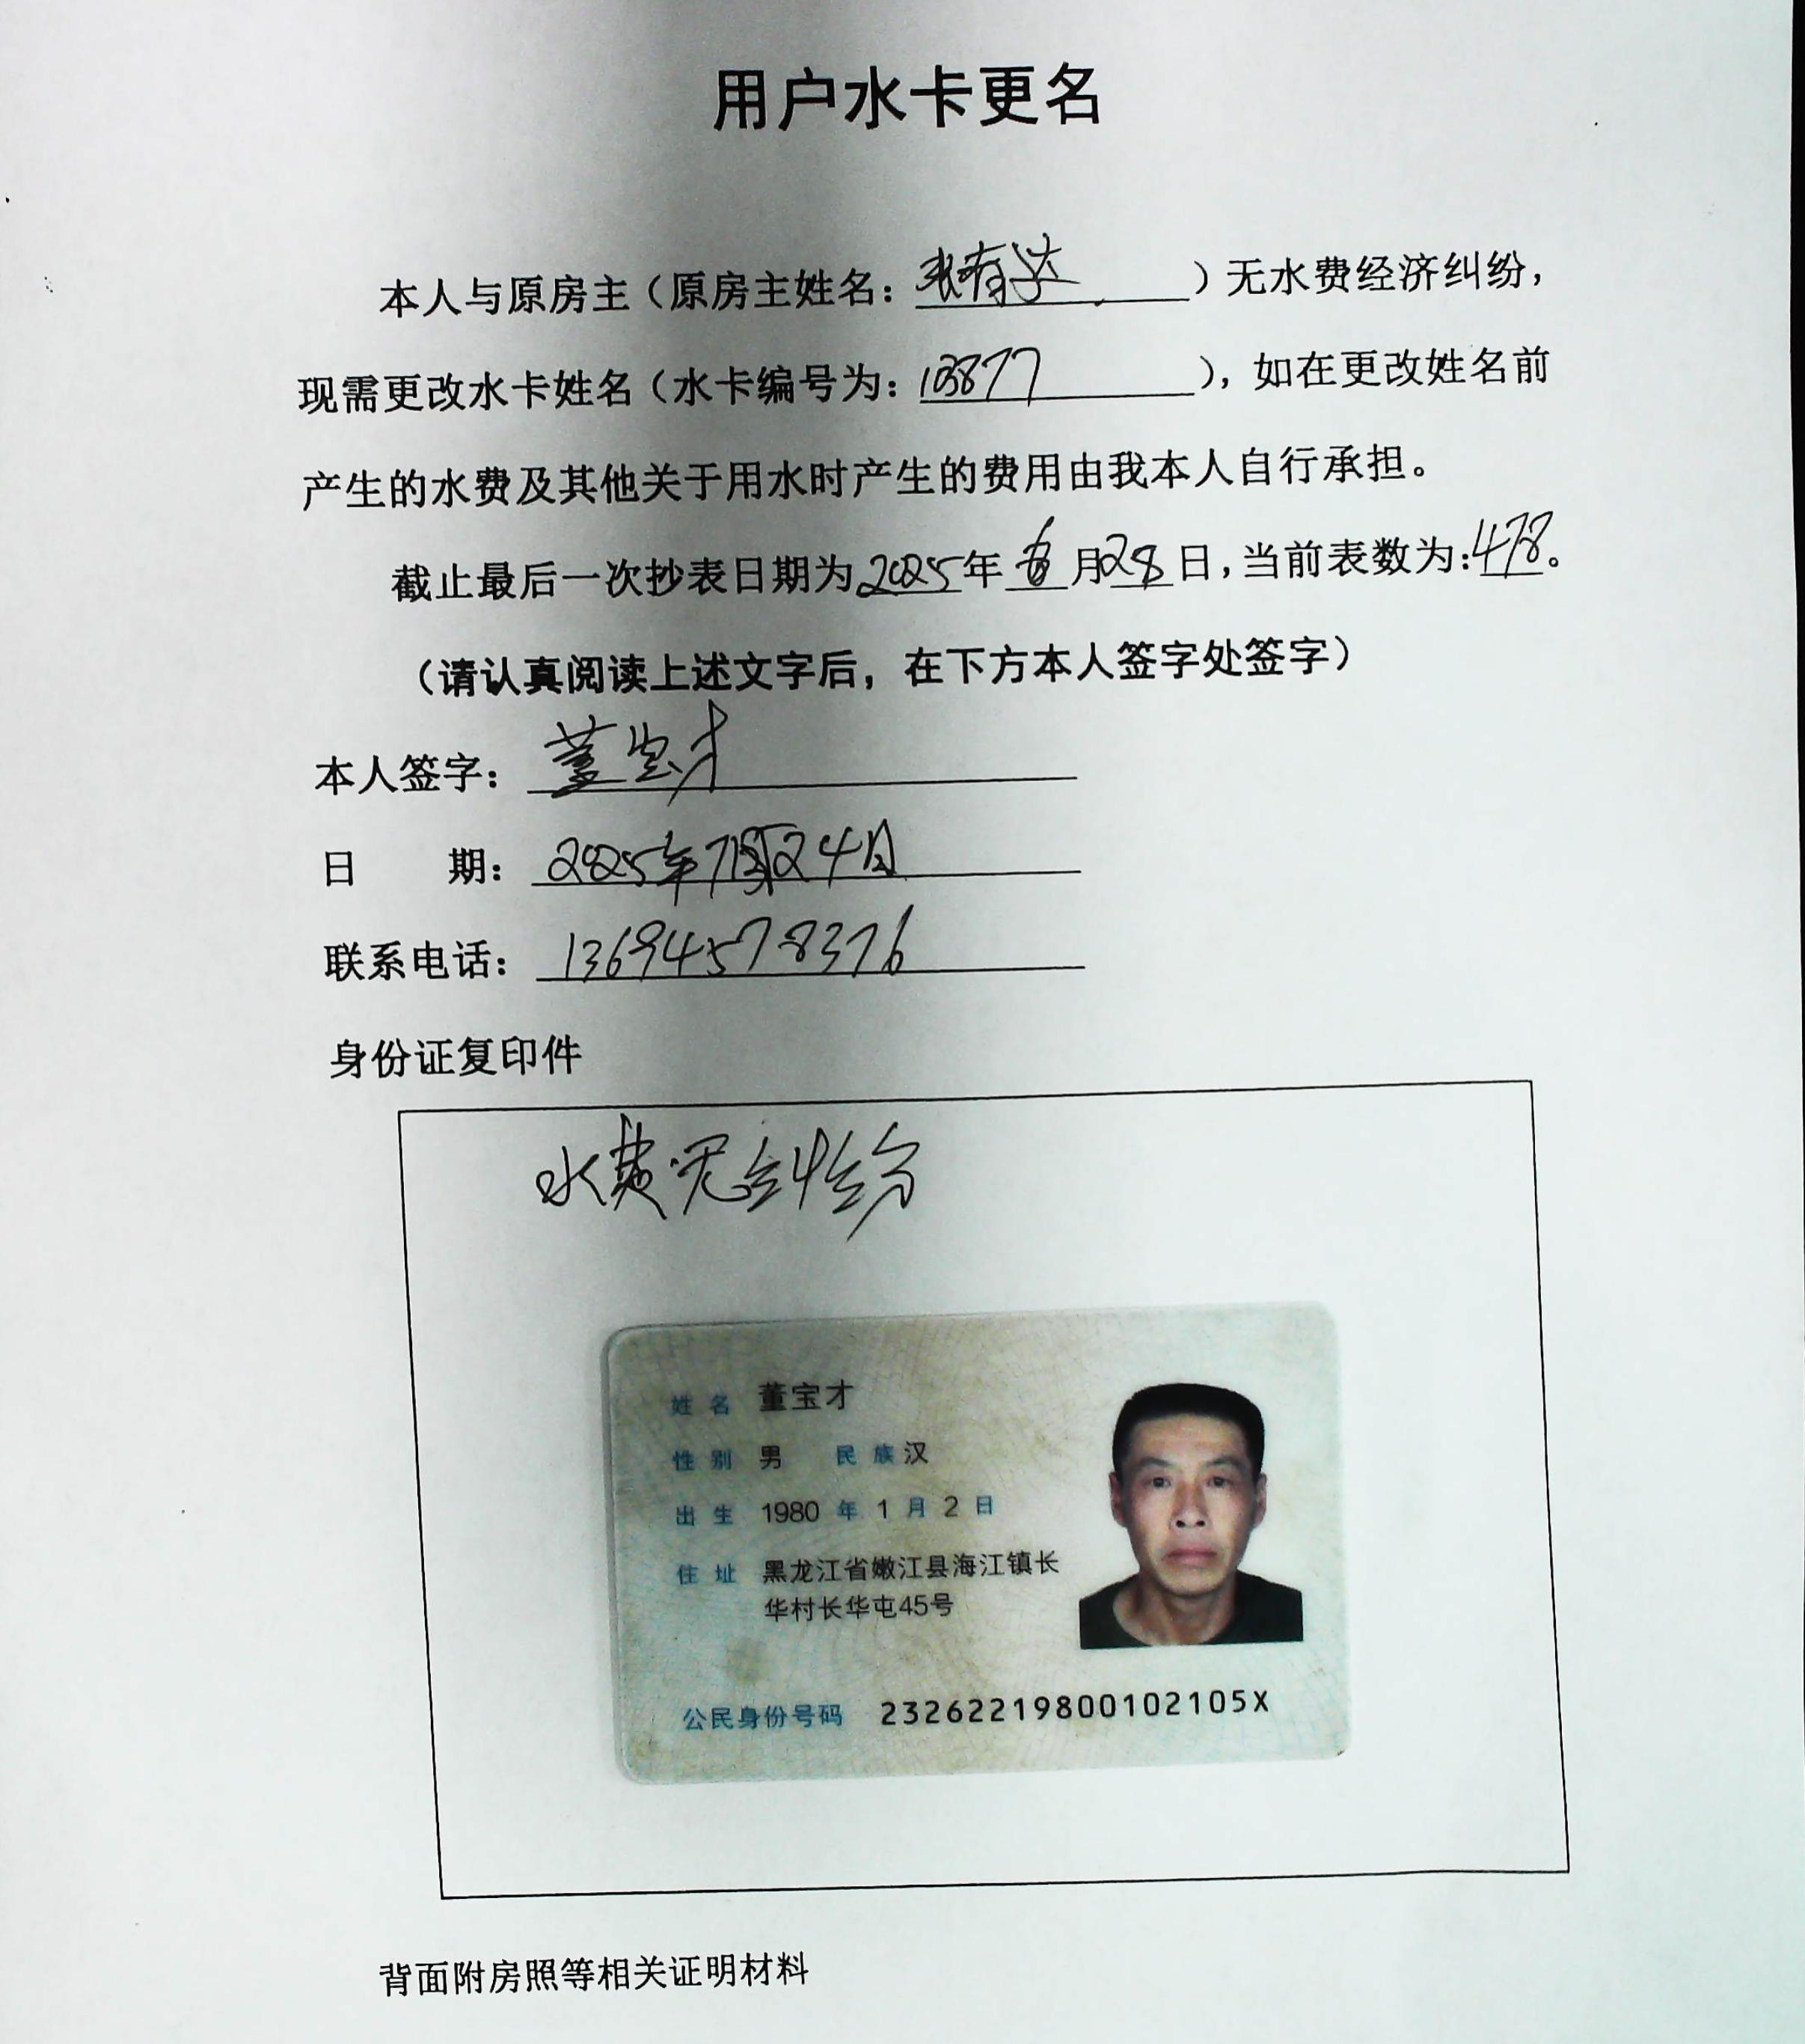 用户水卡更名
本人与原房主（原房主姓名：张有达）无水费经济纠纷，
现需更改水卡姓名（水卡编号为：10877），如在更改姓名前
产生的水费及其他关于用水时产生的费用由我本人自行承担。
截止最后一次抄表日期为2025年6月28日，当前表数为：478。
（请认真阅读上述文字后，在下方本人签字处签字）
本人签字：董宝才
日 期：2025年7月24日
联系电话：13694578376
身份证复印件
水费无纠纷
姓名 董宝才
性别 男 民族 汉
出生 1980 年 1 月 2 日
住址 黑龙江省嫩江县海江镇长
华村长华屯45号
公民身份号码 23262219800102105X
背面附房照等相关证明材料